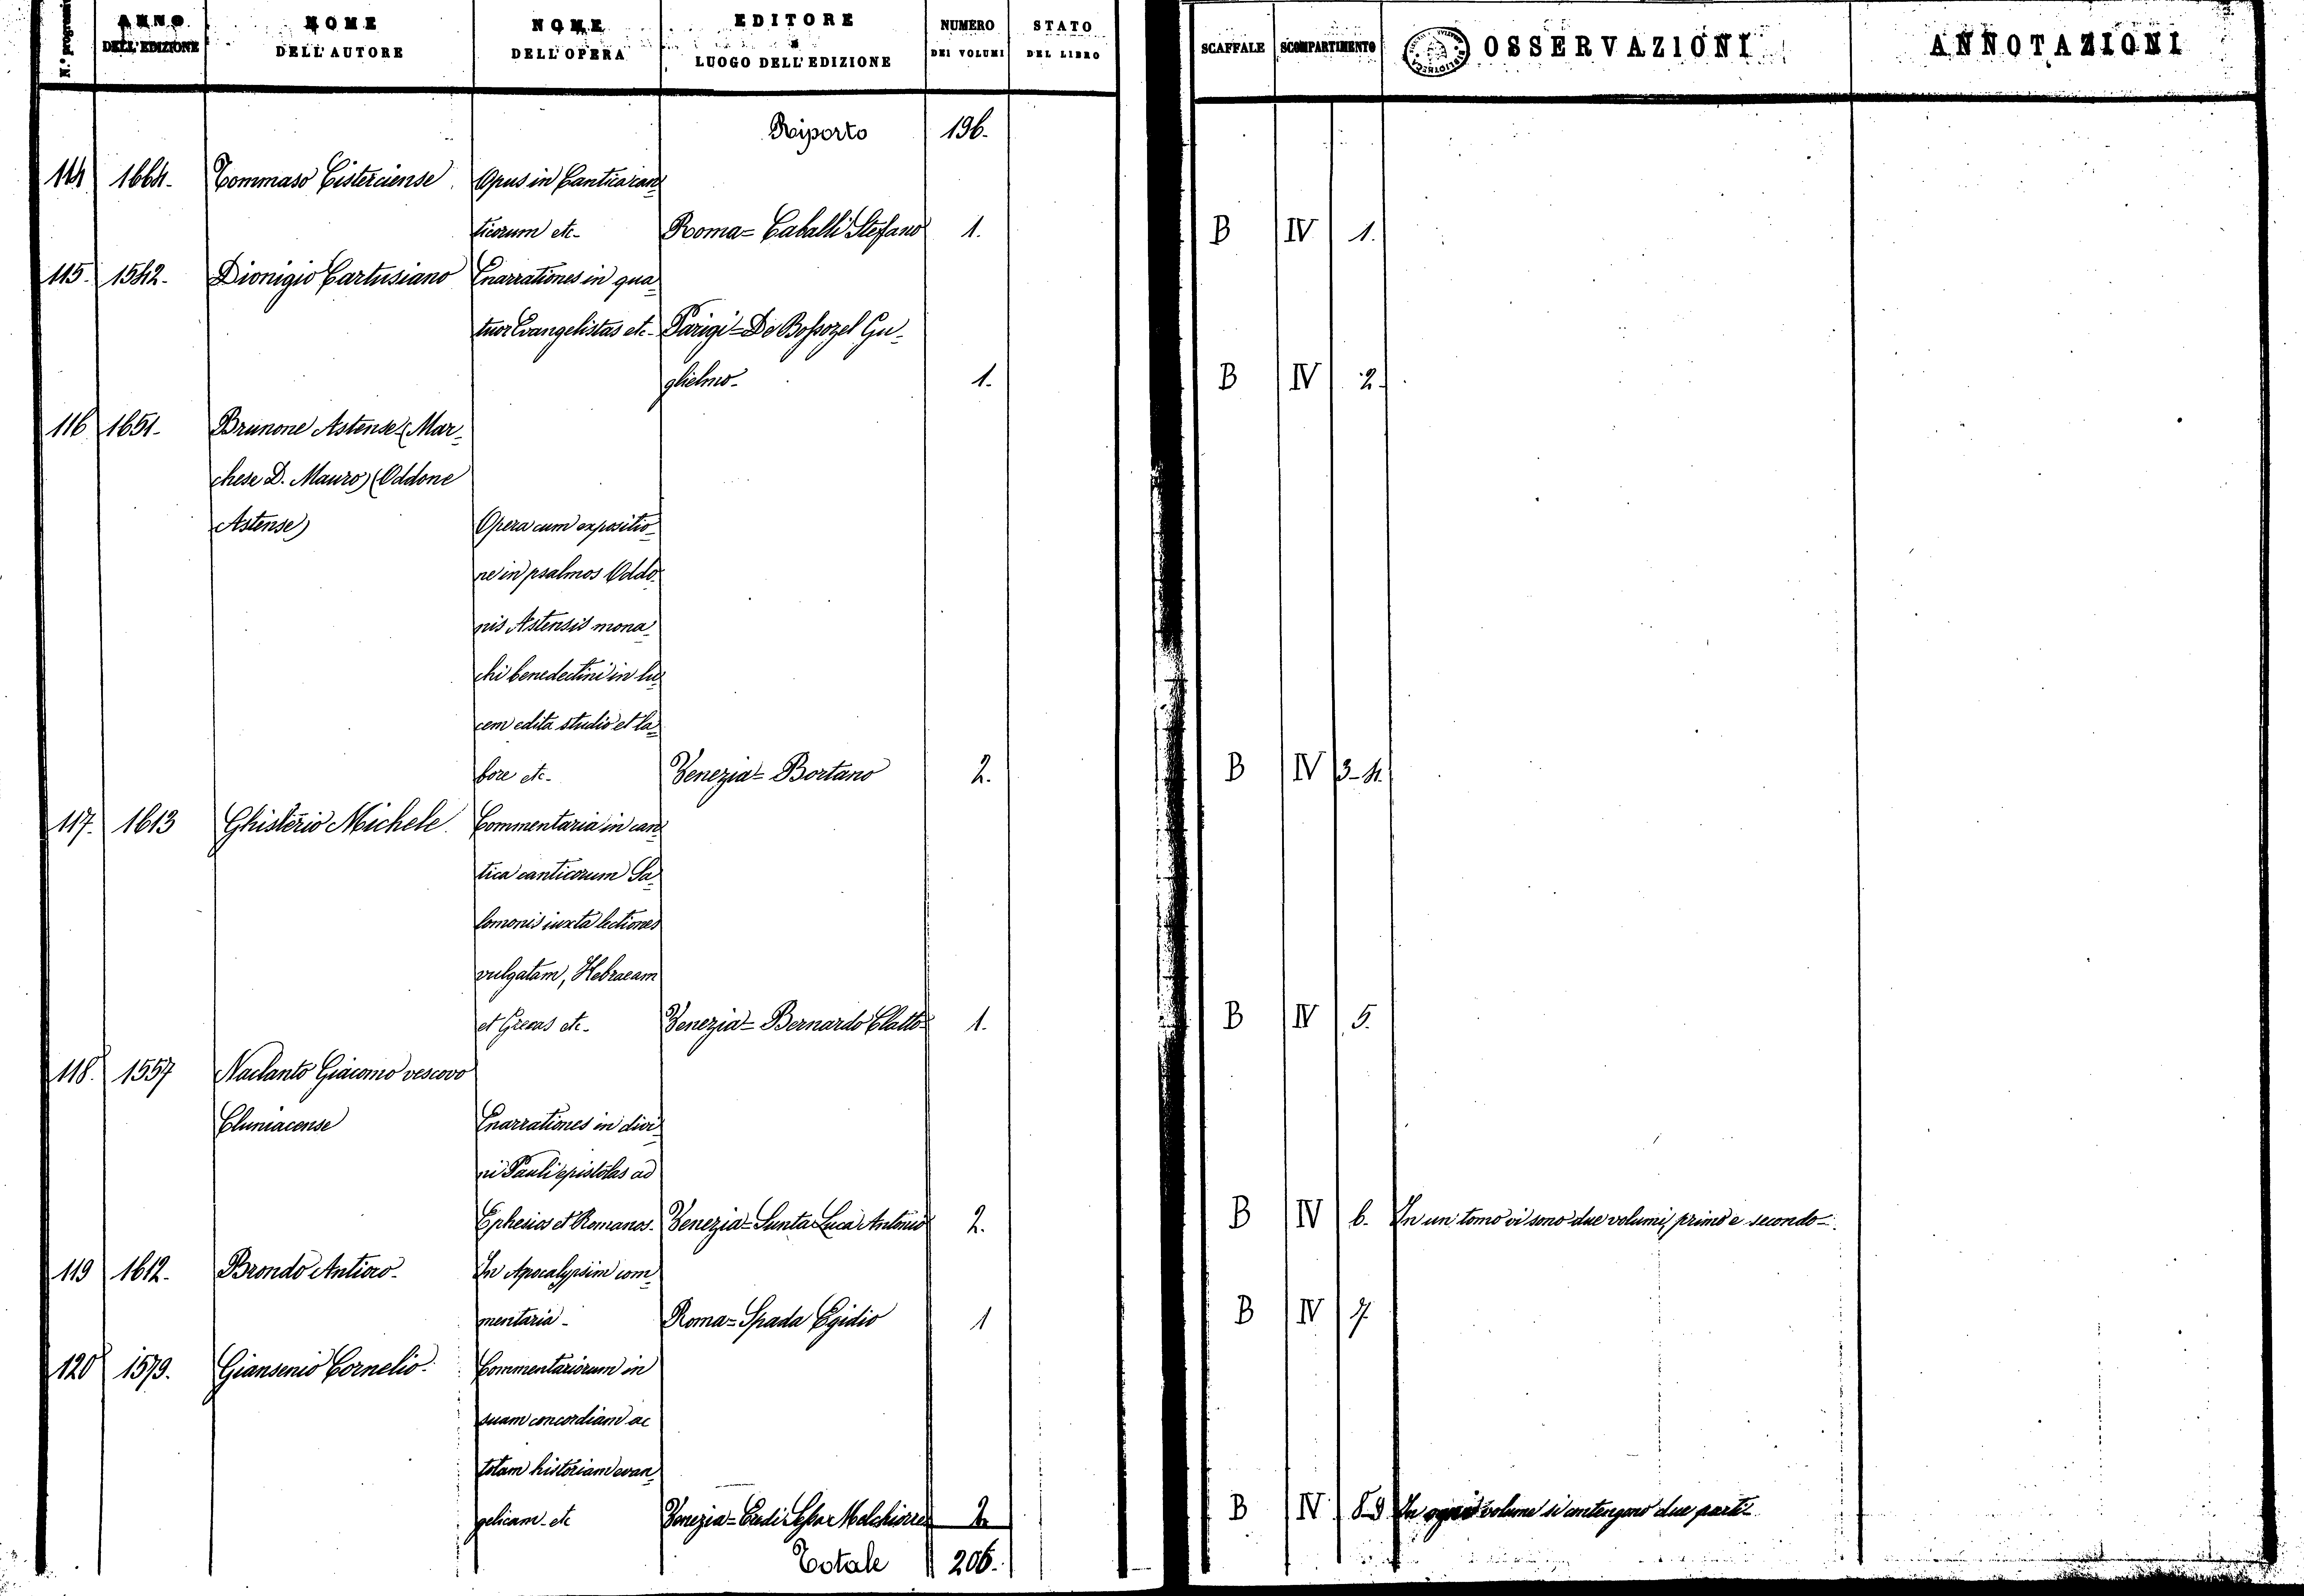 N.º progressi
ANNO DELL'EDIZIONE
NOME DELL'AUTORE
NOME DELL'OPERA
EDITORE E LUOGO DELL'EDIZIONE
NUMERO DEI VOLUMI
STATO DEL LIBRO
SCAFFALE
SCOMPARTIMENTO
OSSERVAZIONI
ANNOTAZIONI
Riporto 196.
114 1664. Tommaso Cisterciense Opus in Cantica can
ticorum etc. Roma = Caballi Stefano 1. B IV 1.
115. 1542. Dionigio Cartusiano Enarrationes in qua
tuor Evangelistas etc. Parigi = De Bossozel Gu
glielmo 1. B IV 2.
116 1651. Brunone Astense (Mar
chese D. Mauro) (Oddone
Astense) Opera cum expositio
ne in psalmos Oddo
nis Astensis mona
chi benedectini in lu
cem edita studio et la
bore etc. Venezia = Bortano 2. B IV 3-4.
117. 1613 Ghisterio Michele Commentaria in can
tica canticorum Sa
lomonis iuxta lectiones
vulgatam, Hebraeam
et Grecas etc. Venezia = Bernardo 1. B IV 5.
118. 1557 Naclanto Giacomo vescovo
Cluniacense Enarrationes in divi
ni Pauli epistolas ad
Ephesios et Romanos. Venezia = Luca Antonio 2. B IV 6. In un tomo vi sono due volumi, primo e secondo
119 1612. Brondo Antioco In Apocalypsim com
mentaria Roma = Spada Egidio 1 B IV 7
120 1579. Giansenio Cornelio Commentariorum in
suam concordiam ac
totam historiam evan
gelicam etc Venezia = Eredi Melchiorre 2. B IV 8-9 In ogni volume si contengono due parti
Totale 206.